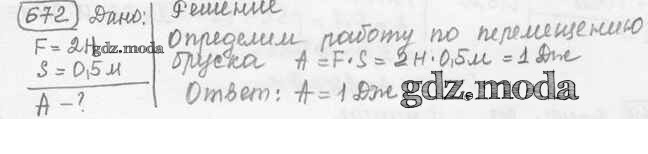 672 Дано:
F = 2Н
S = 0,5 м
А - ?
Решение
Определим работу по перемещению
бруска А = F · S = 2 Н · 0,5 м = 1 Дж
Ответ: А = 1 Дж
gdz.moda
gdz.moda